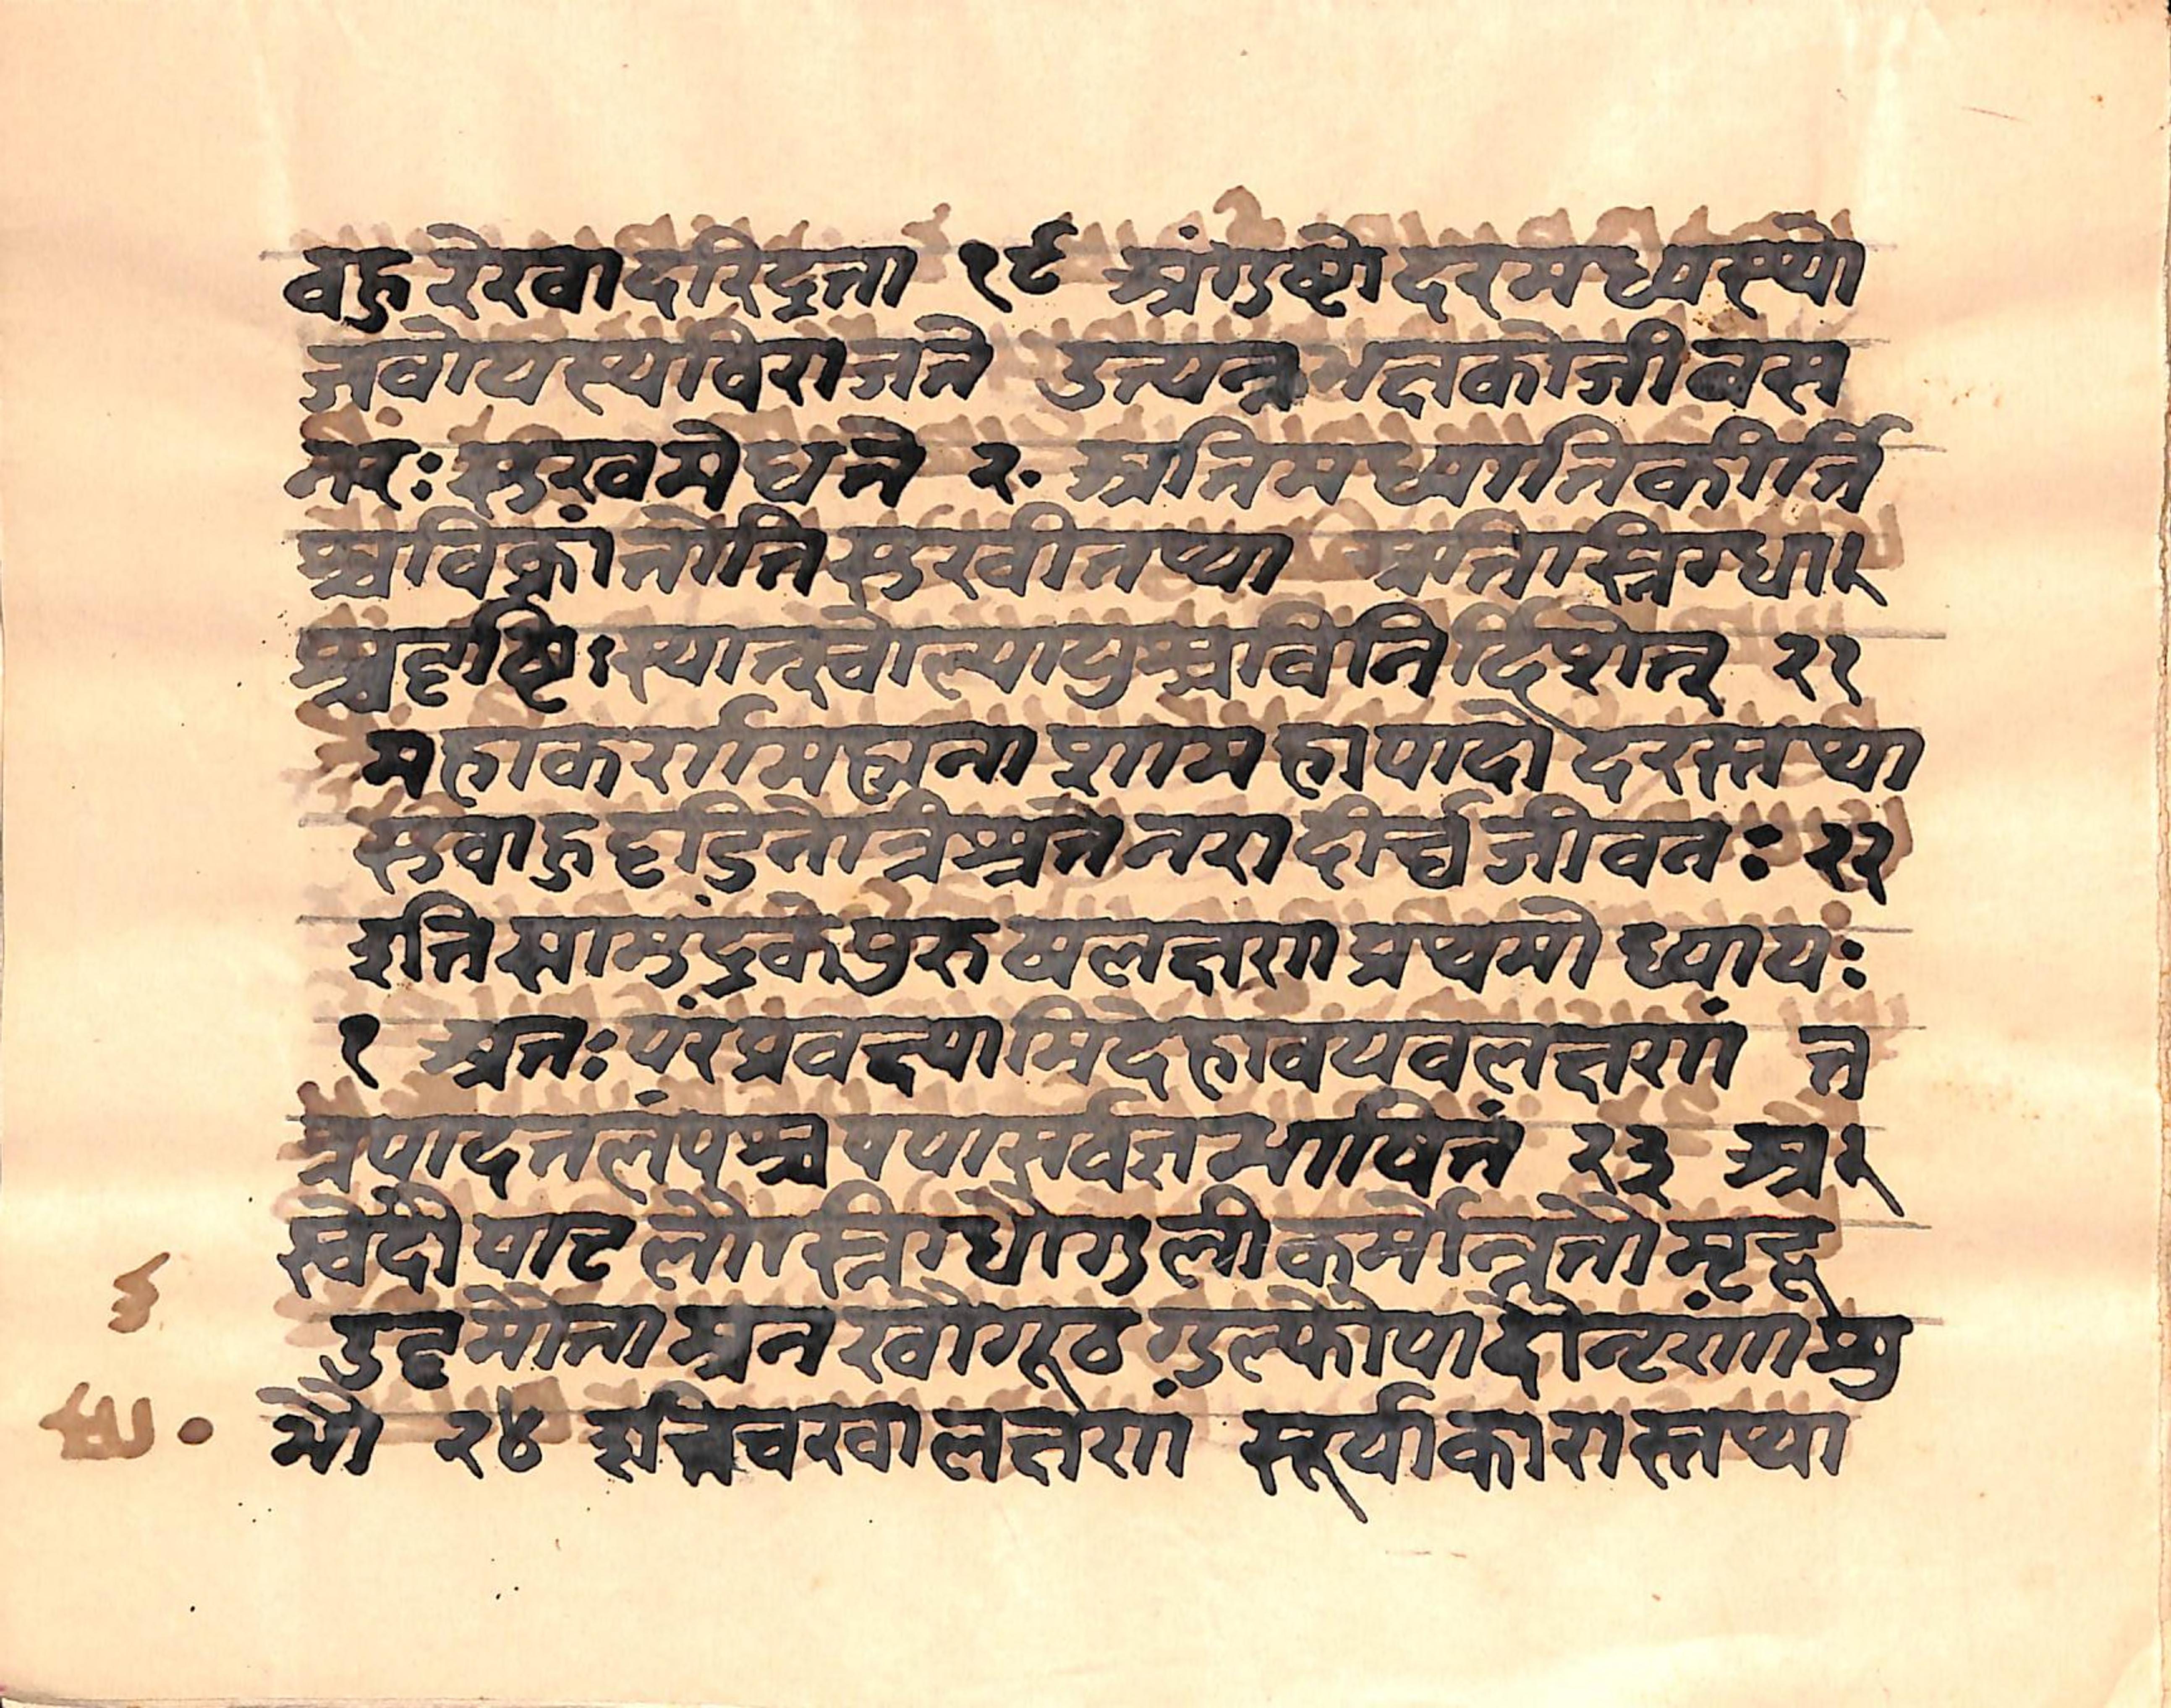 वहुरेखादरिद्रता १९ अंगुष्टोदरमध्यस्थो
जवोयस्यविराजते उत्पन्नभक्षकोजीवस
नरः सुखमेधते २० अतिमध्यातिकीर्ति
श्चविक्रांतोतिसुखीतथा अतिस्निग्धा
श्चदृष्टिः स्यात्वोल्पायुश्चविनिर्दिशेत् २१
महाकर्णामहानाशामहापादोदरस्तथा
सुवाहुदृडितोत्रीश्चतेनरादीर्घजीवतः २२
इतिसामुंद्रकेपुरुषलक्षणप्रथमोध्यायः
१ अतः परंप्रवक्ष्यामिदेहावयवलक्षणां त
त्रपादतलंपश्चषपासर्वज्ञभाषितं २३ अ
स्वेदौपाटलौस्निग्धौगुलीकूर्मोन्नतौमृदू
दुदृमौताम्रनखौगूठगुल्फौपादौन्टणांशु
भौ २४ इतिचरवालक्षणां सूर्याकारास्तथा